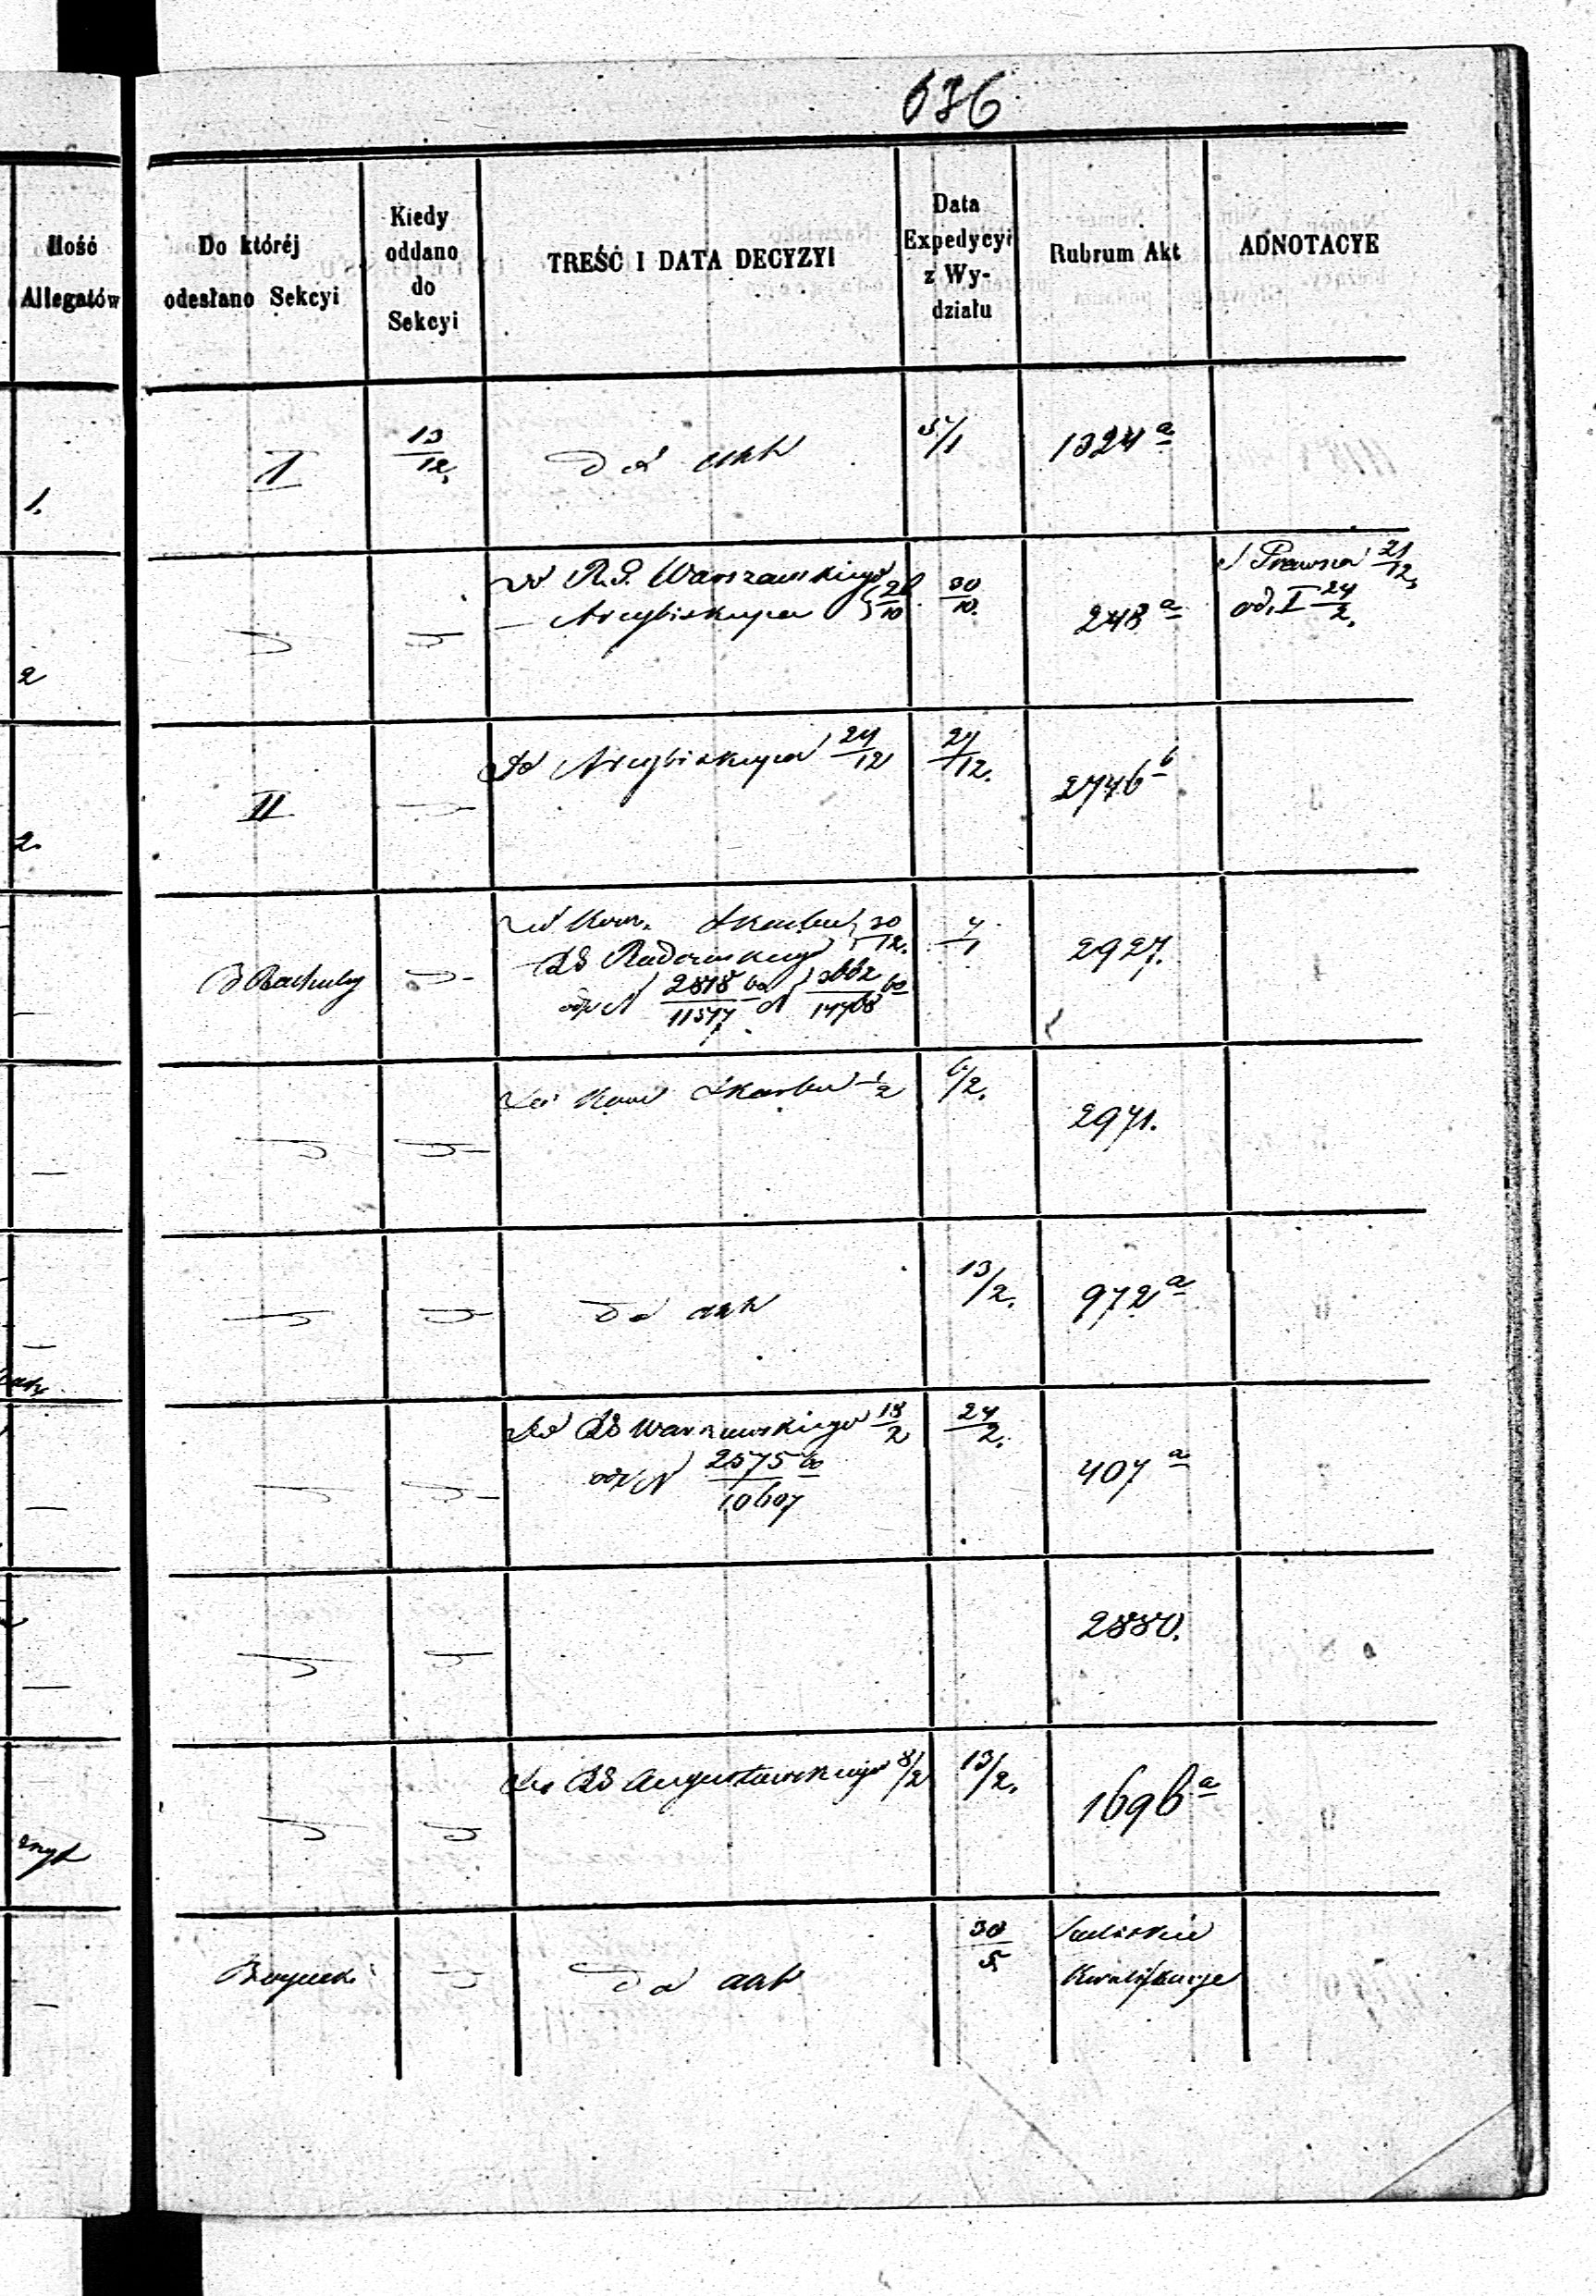 636
Ilość
Allegatów
Do któréj
odesłano Sekcyi
Kiedy
oddano
do
Sekcyi
TREŚĆ I DATA DECYZYI
Data
Expedycyi
z Wy-
działu
Rubrum Akt
ADNOTACYE
1.
I
13/12
Do akt
5/1
1324 a
2
Do R. G. Warszawskiego
Arcybiskupa 26/10
30/10.
248 a
Prawna 21/12
od. I 24/2.
2.
II
Do Arcybiskupa 24/12
24/12.
2746 b
Do Kom. Skarbu 30/12.
RG Radomskiego
2818/11577 3662/14768
7/1
2927.
Do Kom Skarbu 1/2
6/2.
2971.
Do akt
13/2.
972 a
Do RG Warszawskiego 18/2
2575/10607
24/2.
407 a
2880.
Do RG Augustowskiego 8/2
13/2.
1696 a
Do akt
30/5
Kwalifikacje